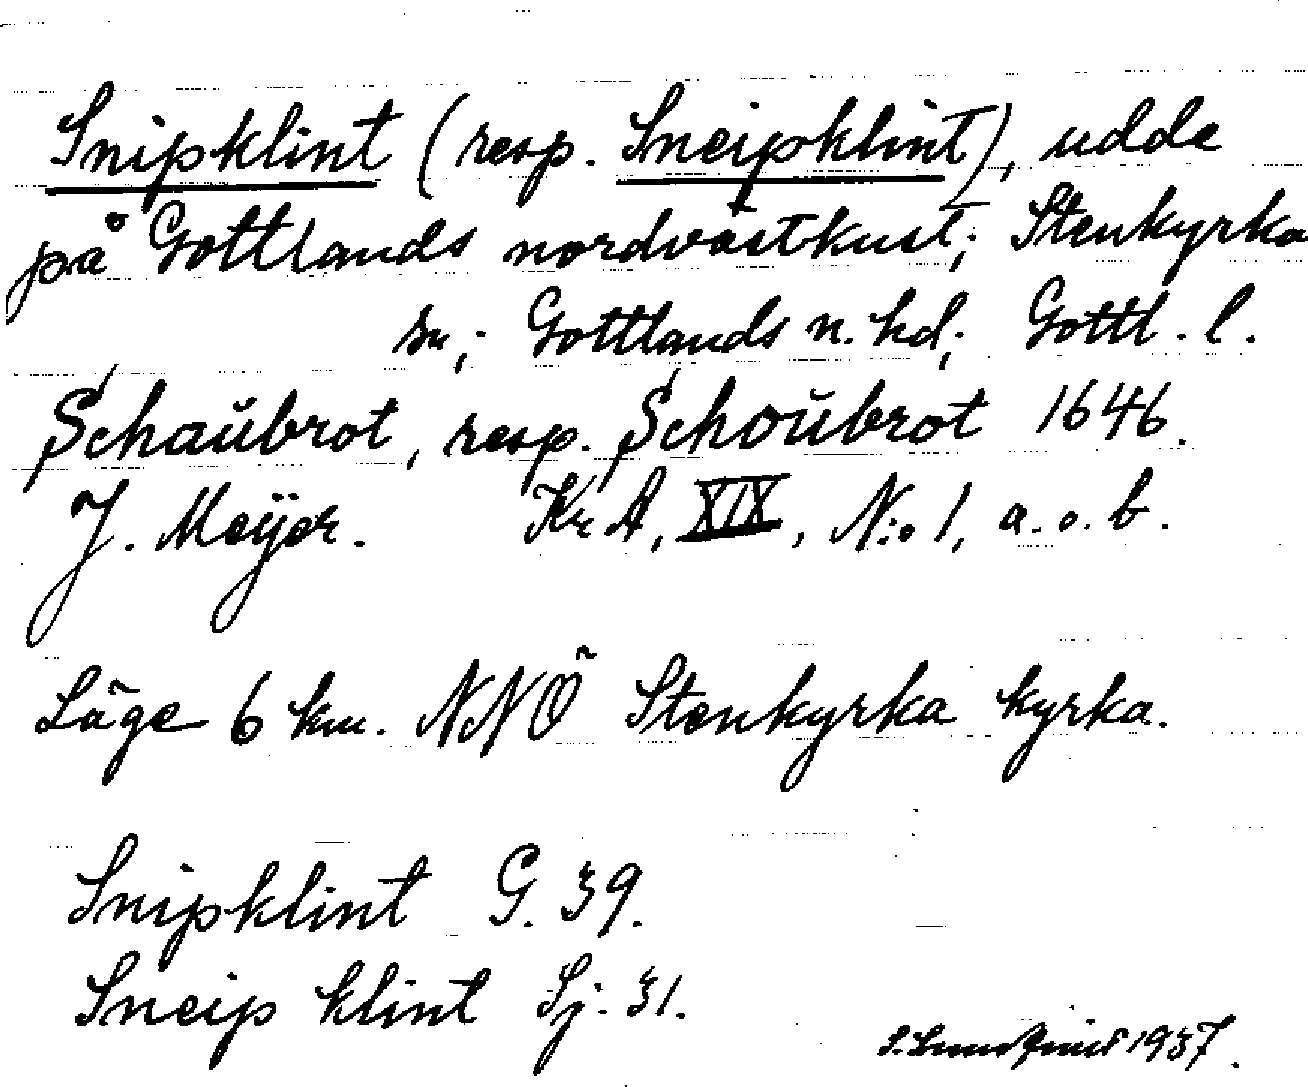 Snipklint (resp. Sneipklint), udde
på Gottlands nordvästkust; Stenkyrka
sn; Gottlands n. hd; Gottl. l.
Schaŭbrot, resp. Schoŭbrot 1646.
J. Meÿer. Kr A, XIX, N:o 1, a. o. b.
Läge 6 km. NNÖ Stenkyrka kyrka.
Snipklint G. 39.
Sneip klint Sj. 31.
1937.